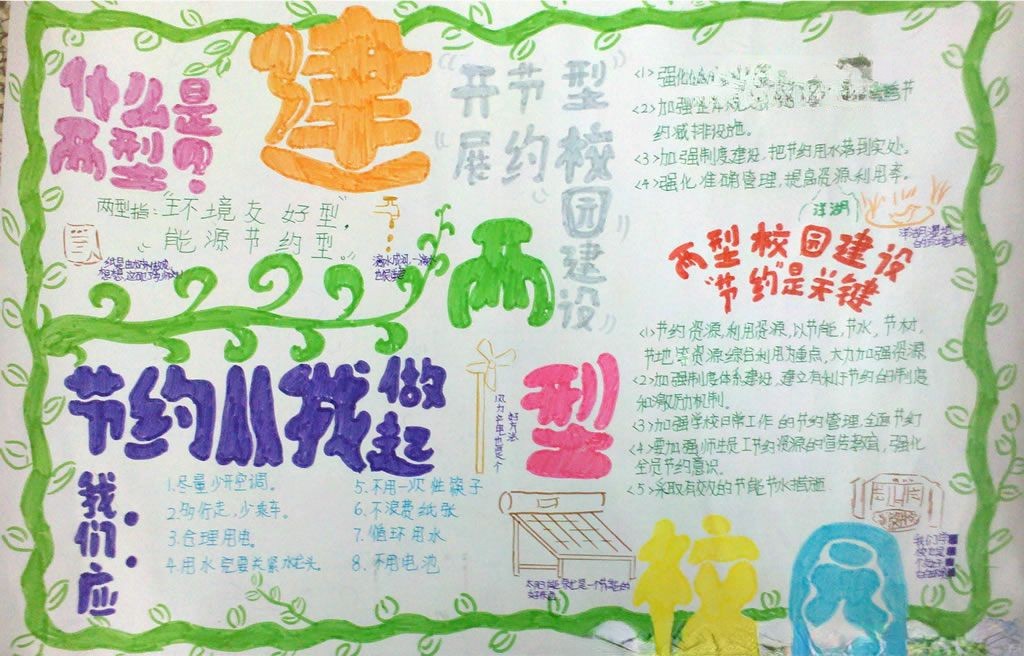 什么是
两型？
建两型校园
两型指："环境友好型"
"能源节约型"。
"开展
节约
型校园建设"
<1>强化
<2>加强
约减排设施。
<3>加强制度建设，把节约用水落到实处。
<4>强化准确管理，提高资源利用率。
洋湖
两型校园建设
"节约"是关键
<1>节约资源，利用资源，以节能，节水，节材，
节地等资源综合利用为重点，大力加强资源
<2>加强制度体系建设，建立有利于节约的制度
和激励机制。
<3>加强学校日常工作的节约管理，全面节约
<4>要加强师生员工节约资源的宣传教育，强化
全员节约意识。
<5>采取有效的节能节水措施
节约从我做起
我们应：
1.尽量少开空调。
2.多行走，少乘车。
3.合理用电。
4.用水完要关紧水龙头。
5.不用一次性筷子
6.不浪费纸张
7.循环用水
8.不用电池
风力发电也是个
好方法
太阳能